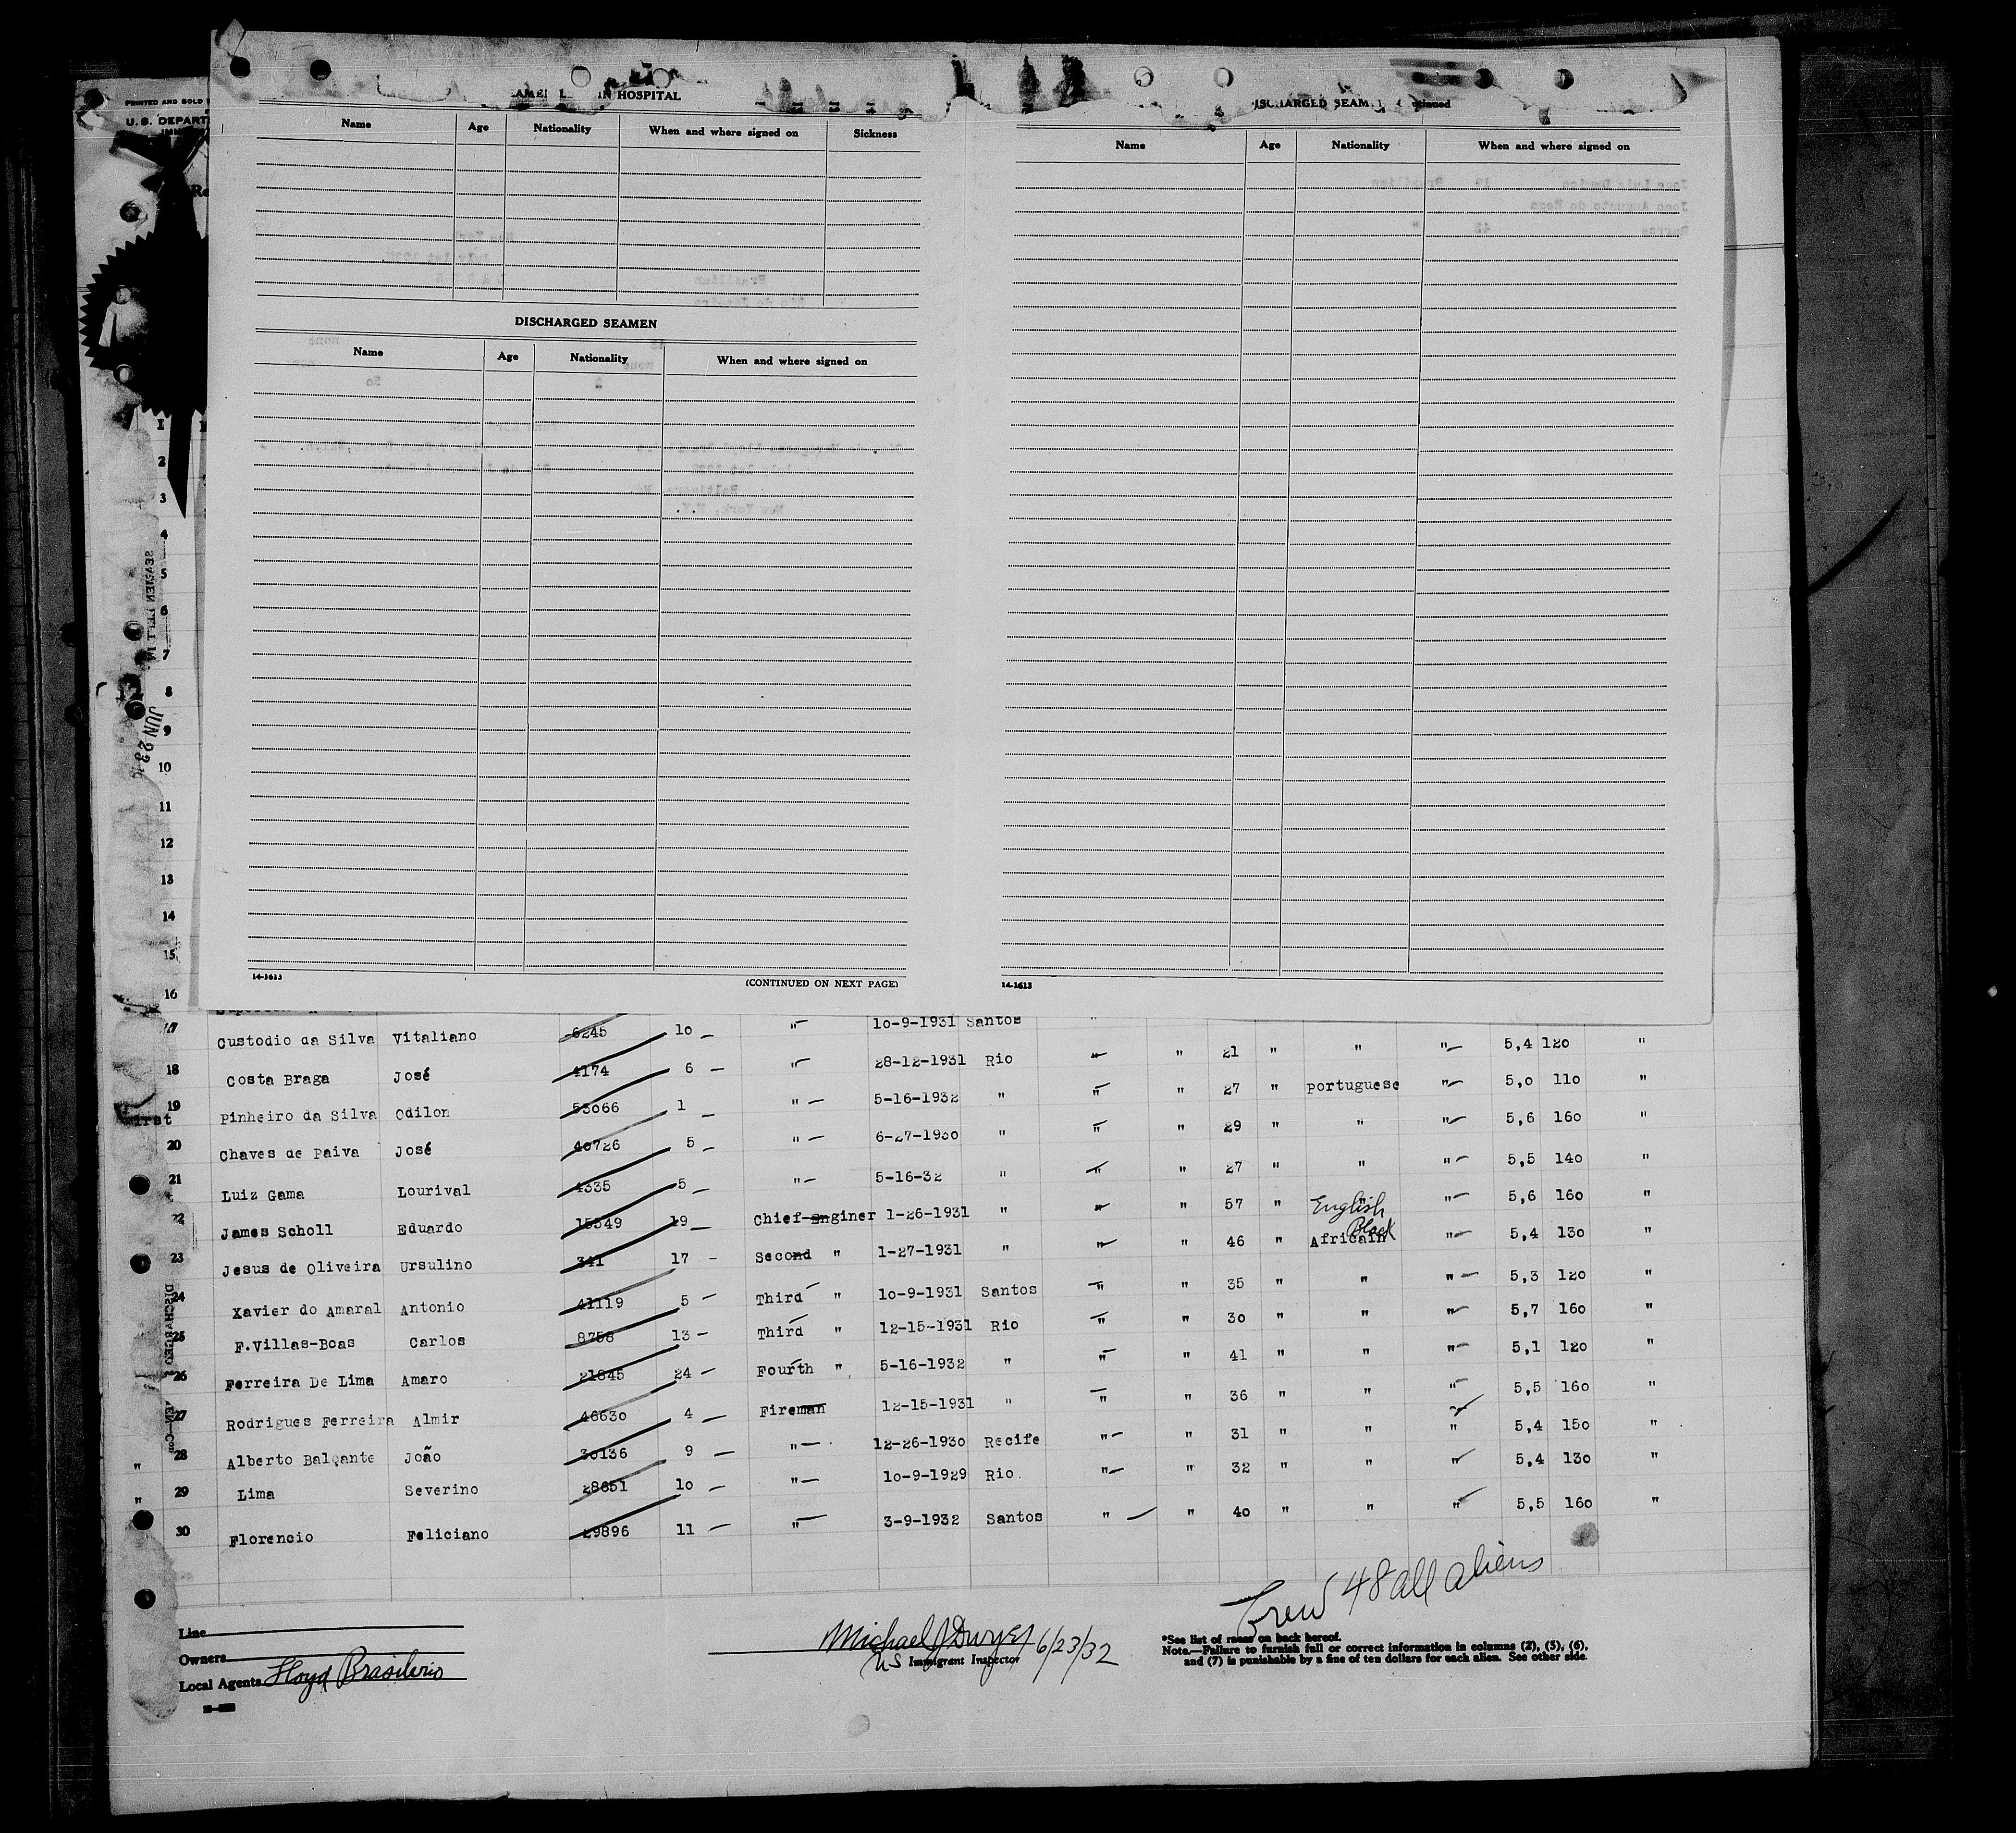 PRINTED AND SOLD
U.S. DEPART
IN HOSPITAL
Name Age Nationality When and where signed on Sickness
DISCHARGED SEAMEN
Name Age Nationality When and where signed on
14-1613 (CONTINUED ON NEXT PAGE)
DISCHARGED SEAM
Name Age Nationality When and where signed on
14-1613
JUN 23
1
2
3
4
5
6
7
8
9
10
11
12
13
14
15
16
17 Custodio da Silva Vitaliano 6245 10 — "— 10-9-1931 Santos "
18 Costa Braga José 4174 6 — "— 28-12-1931 Rio " " 21 " " "— 5,4 120 "
19 Pinheiro da Silva Odilon 53066 1 — "— 5-16-1932 " " " 27 " portuguese "— 5,0 110 "
20 Chaves de Paiva José 40726 5 — "— 6-27-1930 " " " 29 " " "— 5,6 160 "
21 Luiz Gama Lourival 4335 5 — "— 5-16-32 " " " 27 " " "— 5,5 140 "
22 James Scholl Eduardo 15549 19 — Chief Enginer 1-26-1931 " " " 57 " English "— 5,6 160 "
23 Jesus de Oliveira Ursulino 341 17 — Second " 1-27-1931 " " " 46 " Africain Black "— 5,4 130 "
24 Xavier do Amaral Antonio 41119 5 — Third " 10-9-1931 Santos " " 35 " " "— 5,3 120 "
25 F.Villas-Boas Carlos 8758 13 — Third " 12-15-1931 Rio " " 30 " " "— 5,7 160 "
26 Ferreira De Lima Amaro 21845 24 — Fourth " 5-16-1932 " " " 41 " " "— 5,1 120 "
27 Rodrigues Ferreira Almir 46630 4 — Fireman 12-15-1931 " " " 36 " " "— 5,5 160 "
" 28 Alberto Balçante João 30136 9 — "— 12-26-1930 Recife "— " 31 " " " 5,4 150 "
" 29 Lima Severino 28651 10 — "— 10-9-1929 Rio. "— " 32 " " " 5,4 130 "
30 Florencio Feliciano 29896 11 — "— 3-9-1932 Santos " — " 40 " " " 5,5 160 "
Crew 48 all aliens
Line
Owners
Local Agents Lloyd Brasileiro
Michael J Dwyer 6/23/32
US Immigrant Inspector
*See list of races on back hereof.
Note.—Failure to furnish full or correct information in columns (2), (5), (6),
and (7) is punishable by a fine of ten dollars for each alien. See other side.